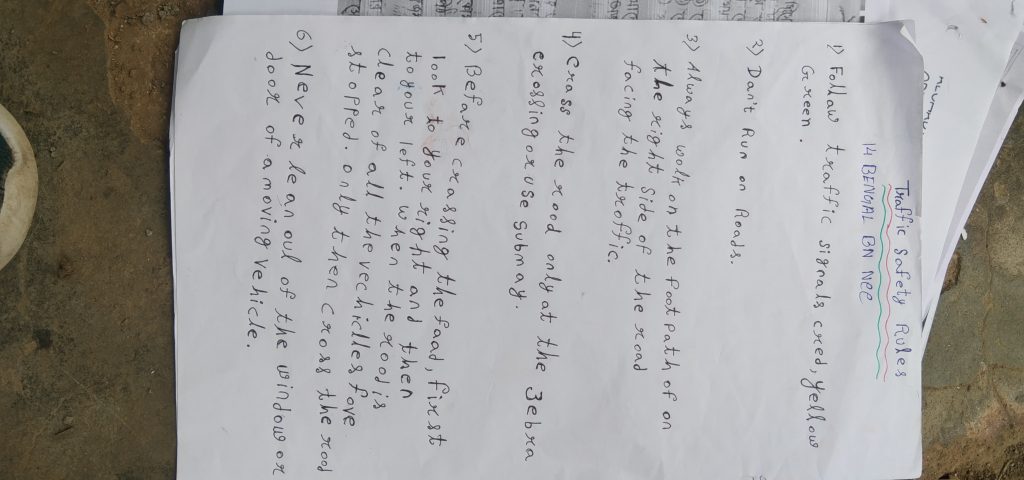 Traffic Safety Rules
14 BENGAL BN NCC
1) Follow traffic signals cred, yellow
Green.
2) Dan't Run on Roads.
3) Always walk on the foot path of on
the right side of the road
facing the traffic.
4) crass the road only at the zebra
crossing or use submay.
5) Before crassing the faad, first
look to your right and then
to your left. when the road is
clear of all the vechicles fave
stopped. only then cross the road
6) Never lean oul of the window or
door of a moving vehicle.